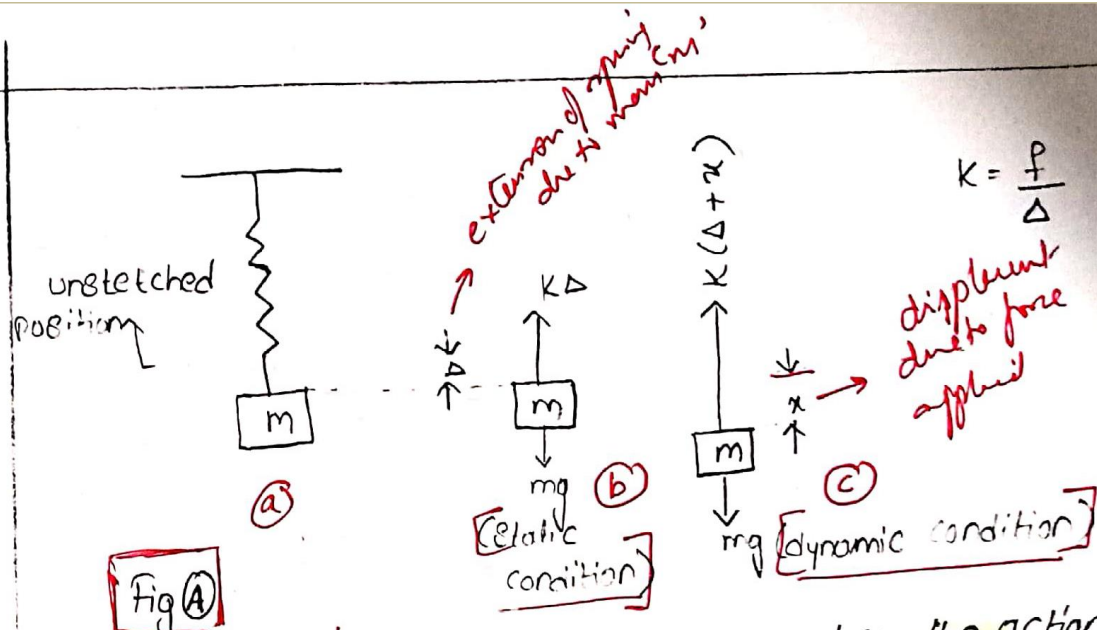 extension of spring
due to mass 'm'
K = f/Δ
unstetched
position
Δ
KΔ
K(Δ+x)
x
displament
due to force
applied
m
m
m
mg
mg
a
b
c
[Static
condition]
[dynamic condition]
Fig A
the action